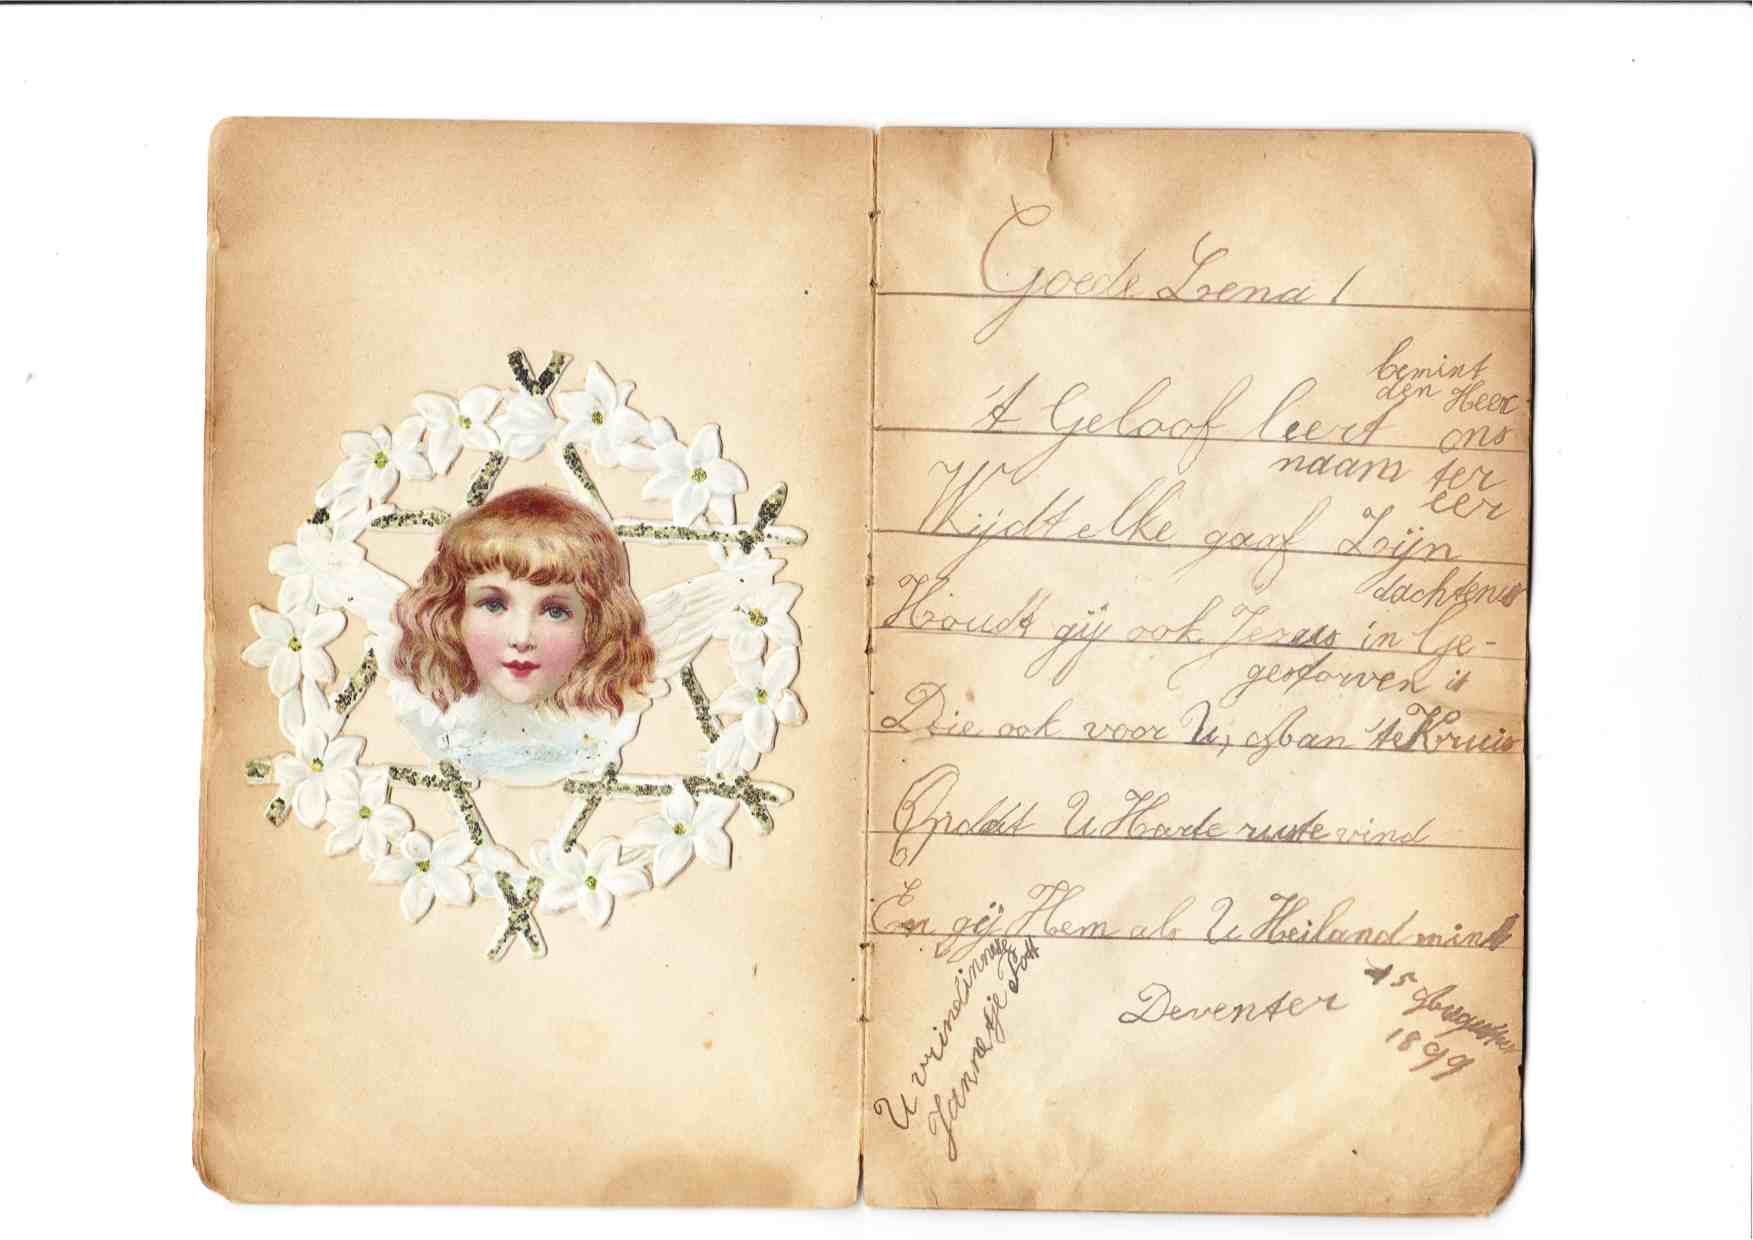 Goede Lena!
bemint
den Heer
't Geloof leert ons
naam ter
eer
Wijdt elke gaaf Zijn
dachtenis
Houdt gij ook Jezus in Ge-
gestorven is
Die ook voor U, Aan 't Kruis
Opdat U Harte ruste vind
En gij Hem als U Heiland mint
U vrindinnetje
Jannetje
Deventer 15 Augustus
1899